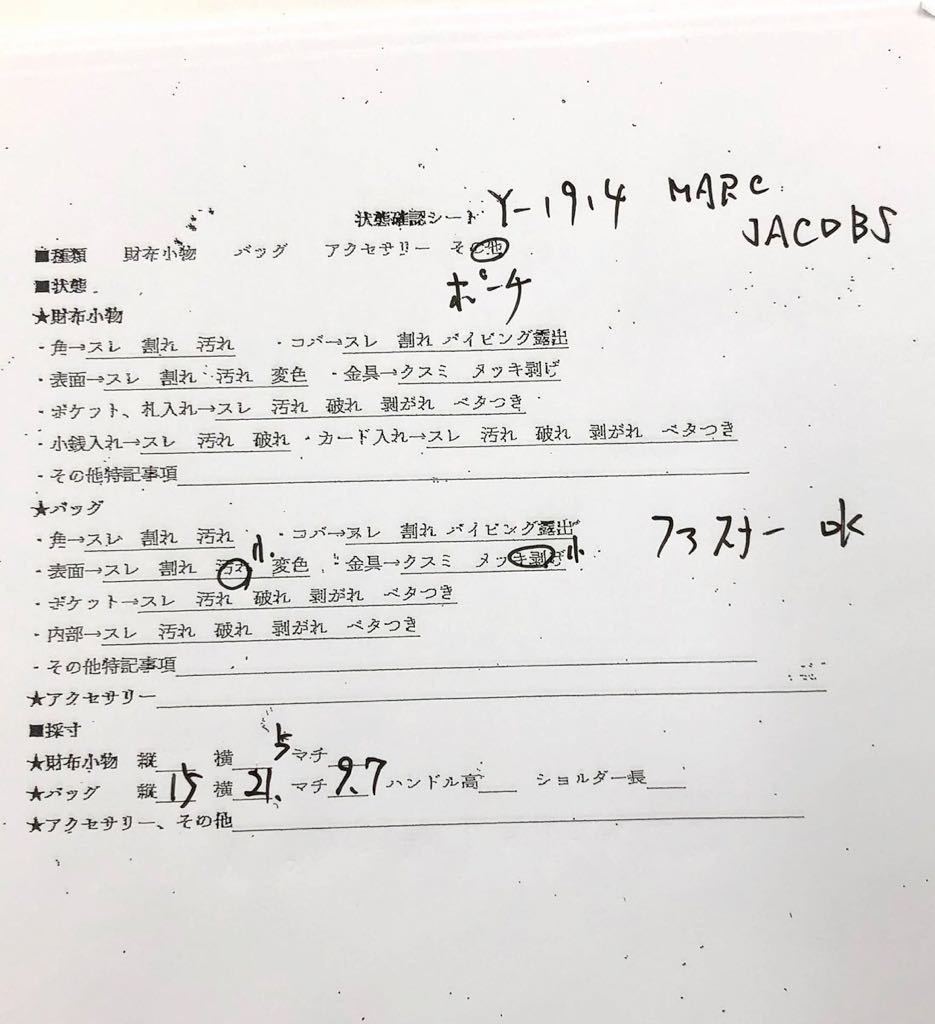 状態確認シート Y-1914 MARC JACOBS
■種類 財布小物 バッグ アクセサリー その他
■状態 ポーチ
★財布小物
・角→スレ 割れ 汚れ ・コバ→スレ 割れ パイピング露出
・表面→スレ 割れ 汚れ 変色 ・金具→クスミ メッキ剥げ
・ポケット、札入れ→スレ 汚れ 破れ 剥がれ ベタつき
・小銭入れ→スレ 汚れ 破れ ・カード入れ→スレ 汚れ 破れ 剥がれ ベタつき
・その他特記事項
★バッグ
・角→スレ 割れ 汚れ ・コバ→スレ 割れ パイピング露出 ファスナー
・表面→スレ 割れ 汚れ 小 変色 ・金具→クスミ メッキ剥げ 小
・ポケット→スレ 汚れ 破れ 剥がれ ベタつき
・内部→スレ 汚れ 破れ 剥がれ ベタつき
・その他特記事項
★アクセサリー
■採寸
★財布小物 縦 横 マチ
★バッグ 縦15 横21.5 マチ9.7 ハンドル高 ショルダー長
★アクセサリー、その他